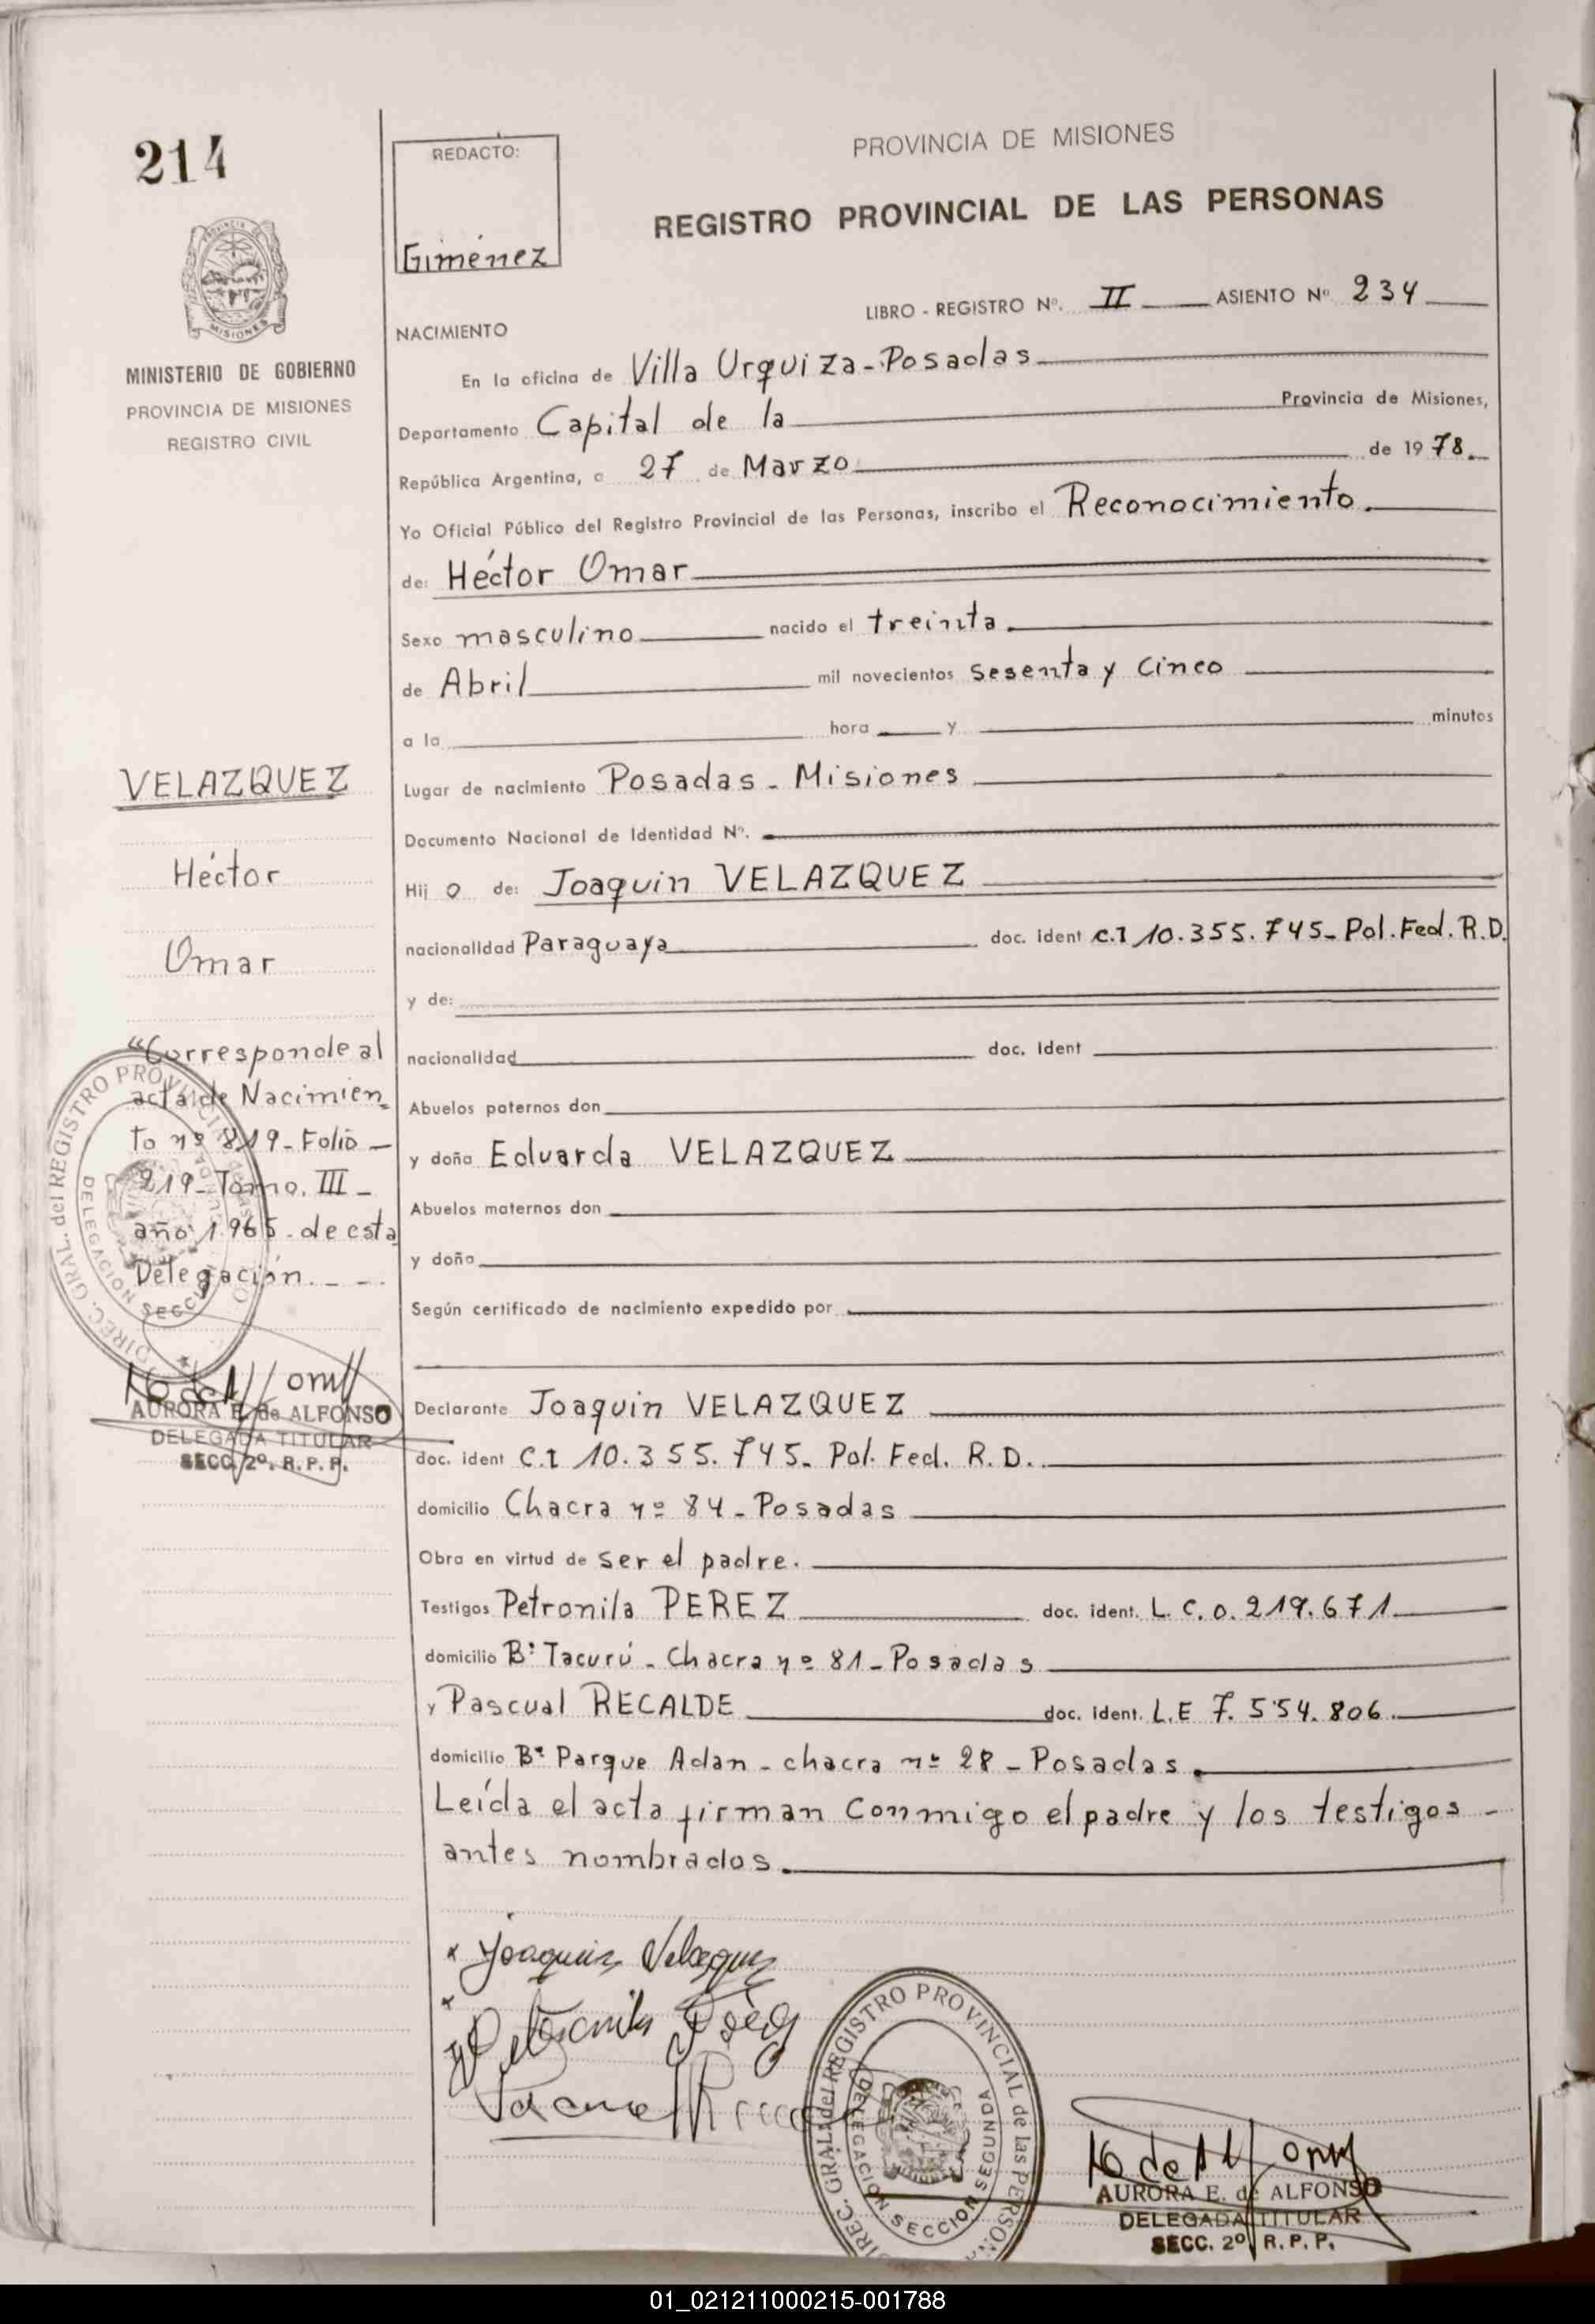 214
REDACTO:
Giménez
PROVINCIA DE MISIONES
REGISTRO PROVINCIAL DE LAS PERSONAS
LIBRO - REGISTRO Nº. II ASIENTO Nº 234
MISIONES
MINISTERIO DE GOBIERNO
PROVINCIA DE MISIONES
REGISTRO CIVIL
NACIMIENTO
En la oficina de Villa Urquiza - Posadas
Departamento Capital de la Provincia de Misiones,
República Argentina, a 27 de Marzo de 1978.
Yo Oficial Público del Registro Provincial de las Personas, inscribo el Reconocimiento.
de: Héctor Omar
Sexo masculino nacido el treinta.
de Abril mil novecientos sesenta y cinco
a la hora y minutos
Lugar de nacimiento Posadas - Misiones
Documento Nacional de Identidad Nº.
Hij o de: Joaquin VELAZQUEZ
nacionalidad Paraguaya doc. ident C.I 10.355.745- Pol. Fed. R.D.
y de:
nacionalidad doc. Ident
Abuelos paternos don
y doña Eduarda VELAZQUEZ
Abuelos maternos don
y doña
Según certificado de nacimiento expedido por
Declarante Joaquin VELAZQUEZ
doc. ident C.I 10.355.745- Pol. Fed. R.D..
domicilio Chacra nº 84 - Posadas
Obra en virtud de ser el padre.
Testigos Petronila PEREZ doc. ident. L.C.0.219.671
domicilio Bº Tacurú - Chacra nº 81 - Posadas
y Pascual RECALDE doc. ident. L.E 7.554.806.
domicilio Bº Parque Adan - chacra nº 28 - Posadas.
Leída el acta firman conmigo el padre y los testigos -
antes nombrados.
VELAZQUEZ
Héctor
Omar
"Corresponde al
acta de Nacimien
to nº 819 - Folio -
219 - Tomo. III -
año 1.965 - de esta
Delegación. - -.
DIREC. GRAL. del REGISTRO PROVINCIAL
DELEGACION SECCION SEGUNDA
AURORA E. de ALFONSO
DELEGADA TITULAR
SECC. 2º. R. P. P.
x Joaquin Velazquez
x Petronila Perez
DIREC. GRAL. del REGISTRO PROVINCIAL de las PERSONAS
DELEGACION SECCION SEGUNDA
AURORA E. de ALFONSO
DELEGADA TITULAR
SECC. 2º. R. P. P.
01_021211000215-001788